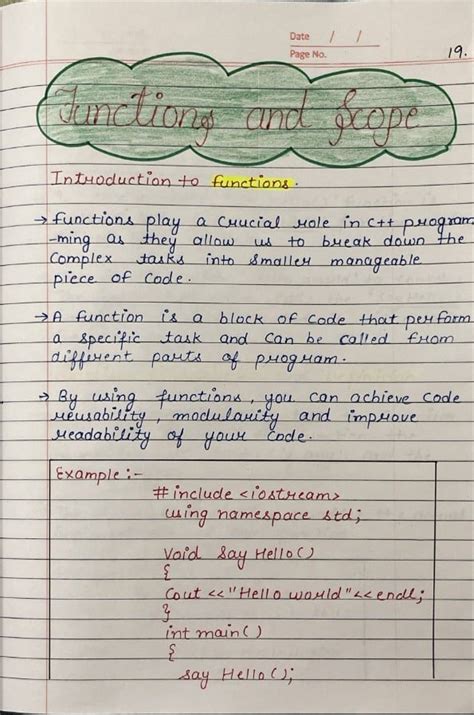 Date / /
Page No.
19.
Functions and Scope
Introduction to functions.
→ functions play a crucial role in C++ program
-ming as they allow us to break down the
complex tasks into smaller manageable
piece of code.
→ A function is a block of code that perform
a specific task and can be called from
different parts of program.
→ By using functions, you can achieve code
reusability, modularity and improve
readability of your code.
Example :-
# include <iostream>
using namespace std;
void say Hello()
{
cout <<"Hello world"<< endl;
}
int main()
{
say Hello();